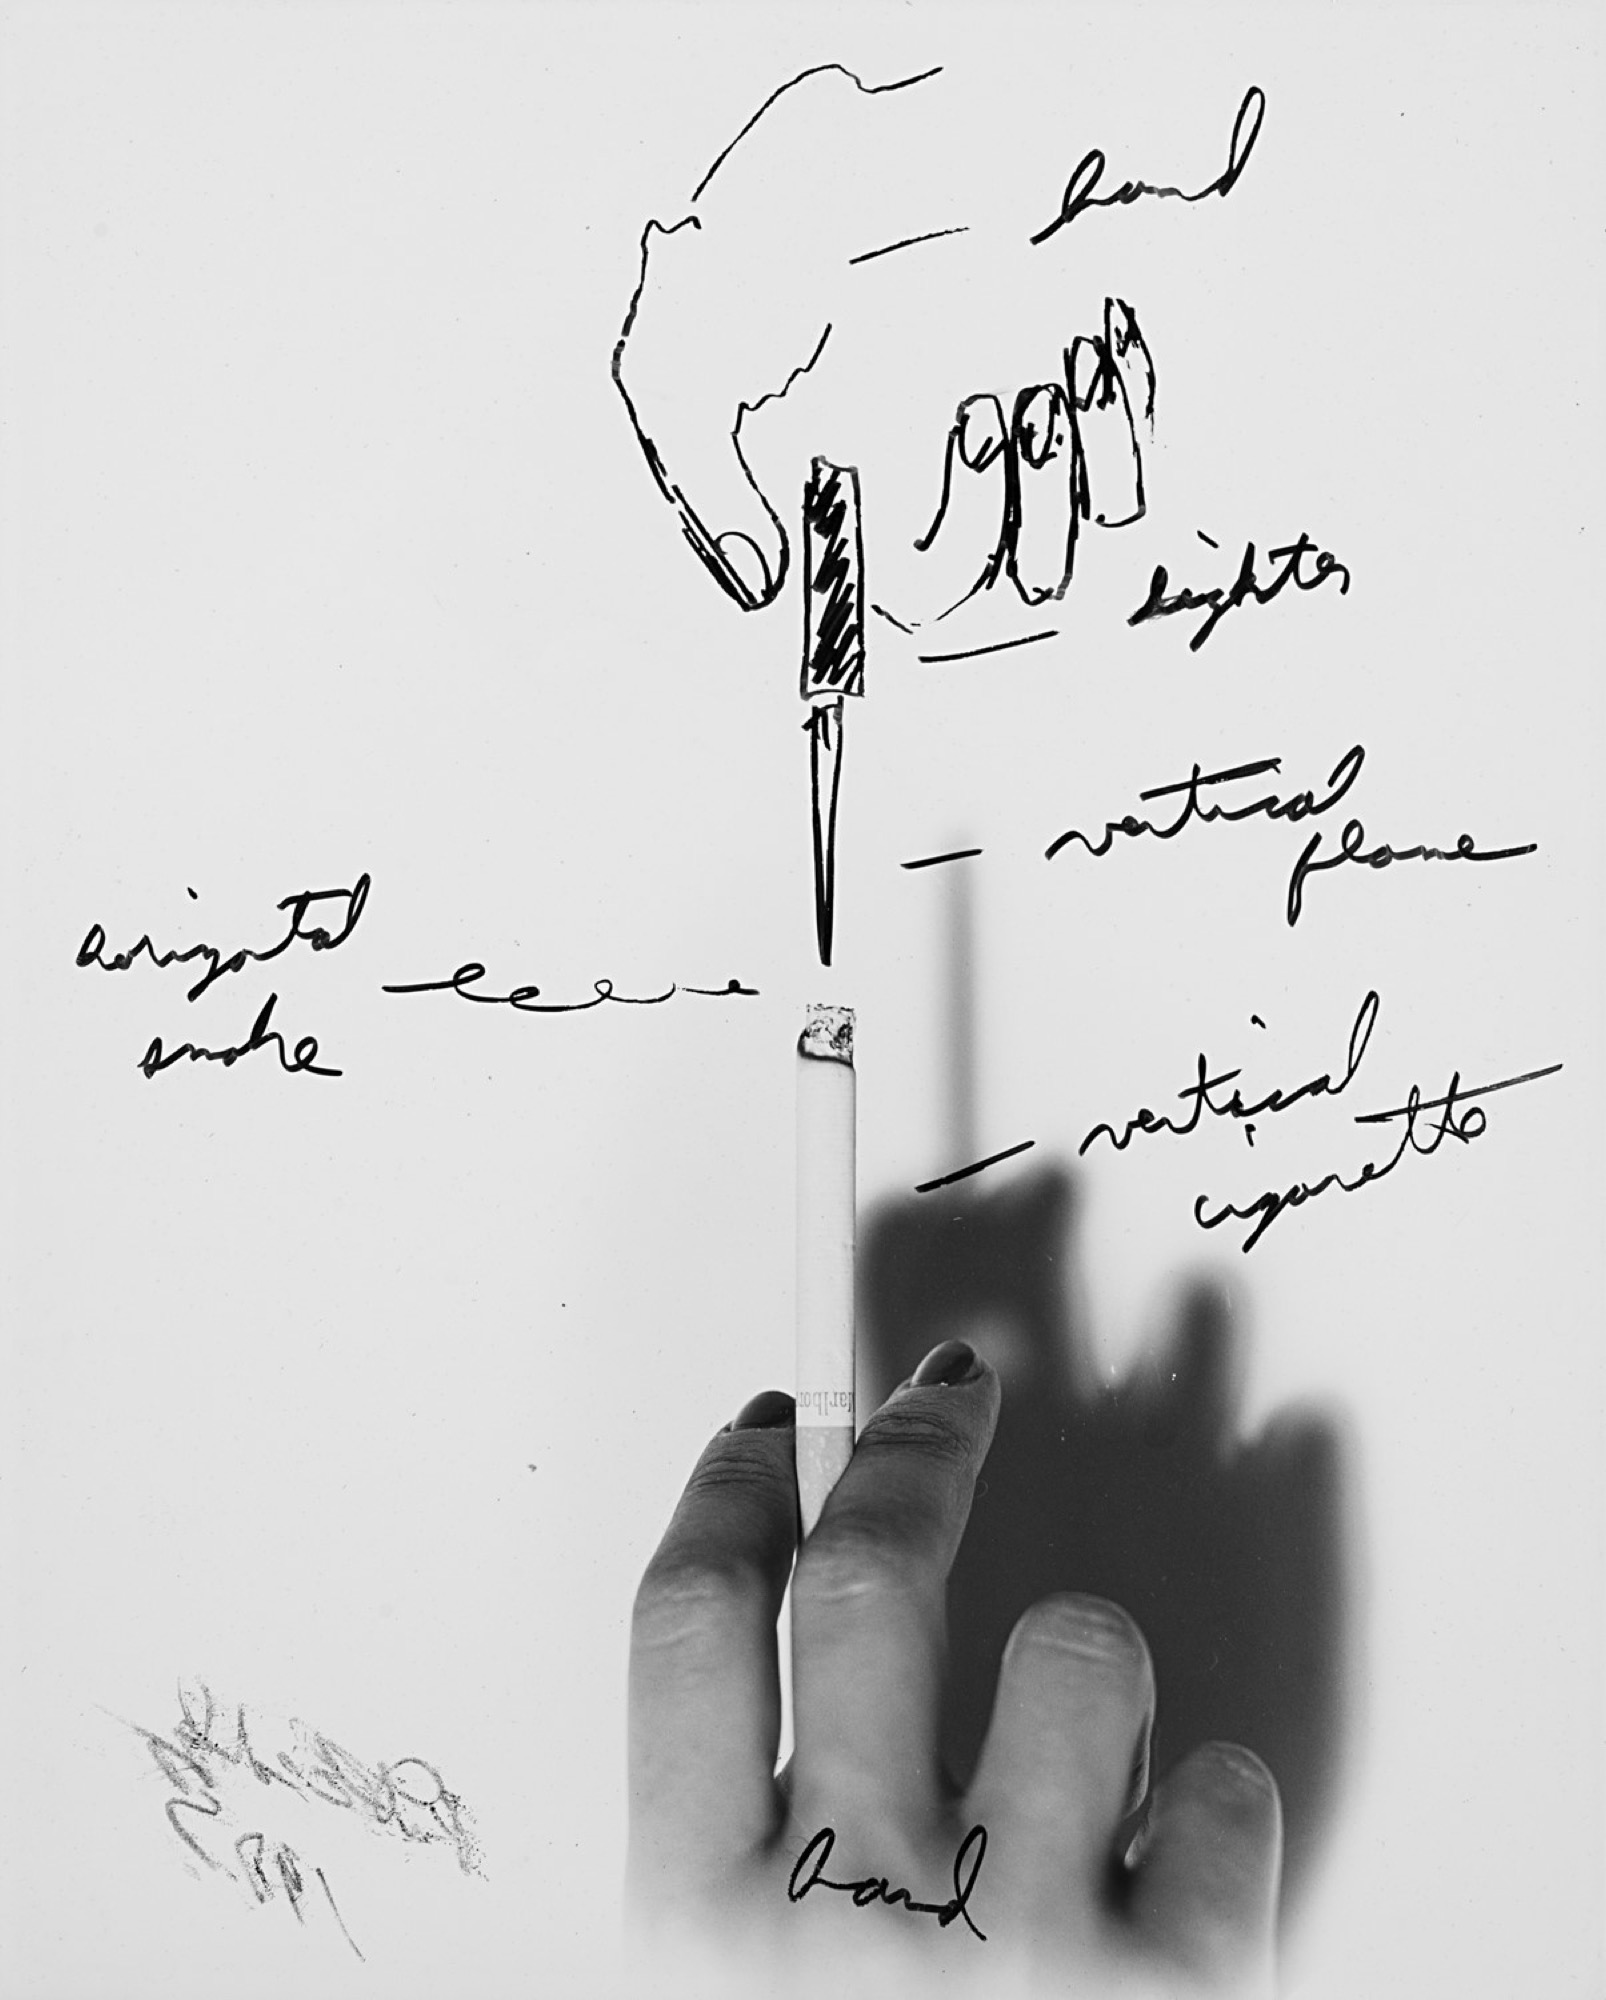 hand
lighter
vertical
flame
horizontal
smoke
vertical
cigarette
Marlboro
hand